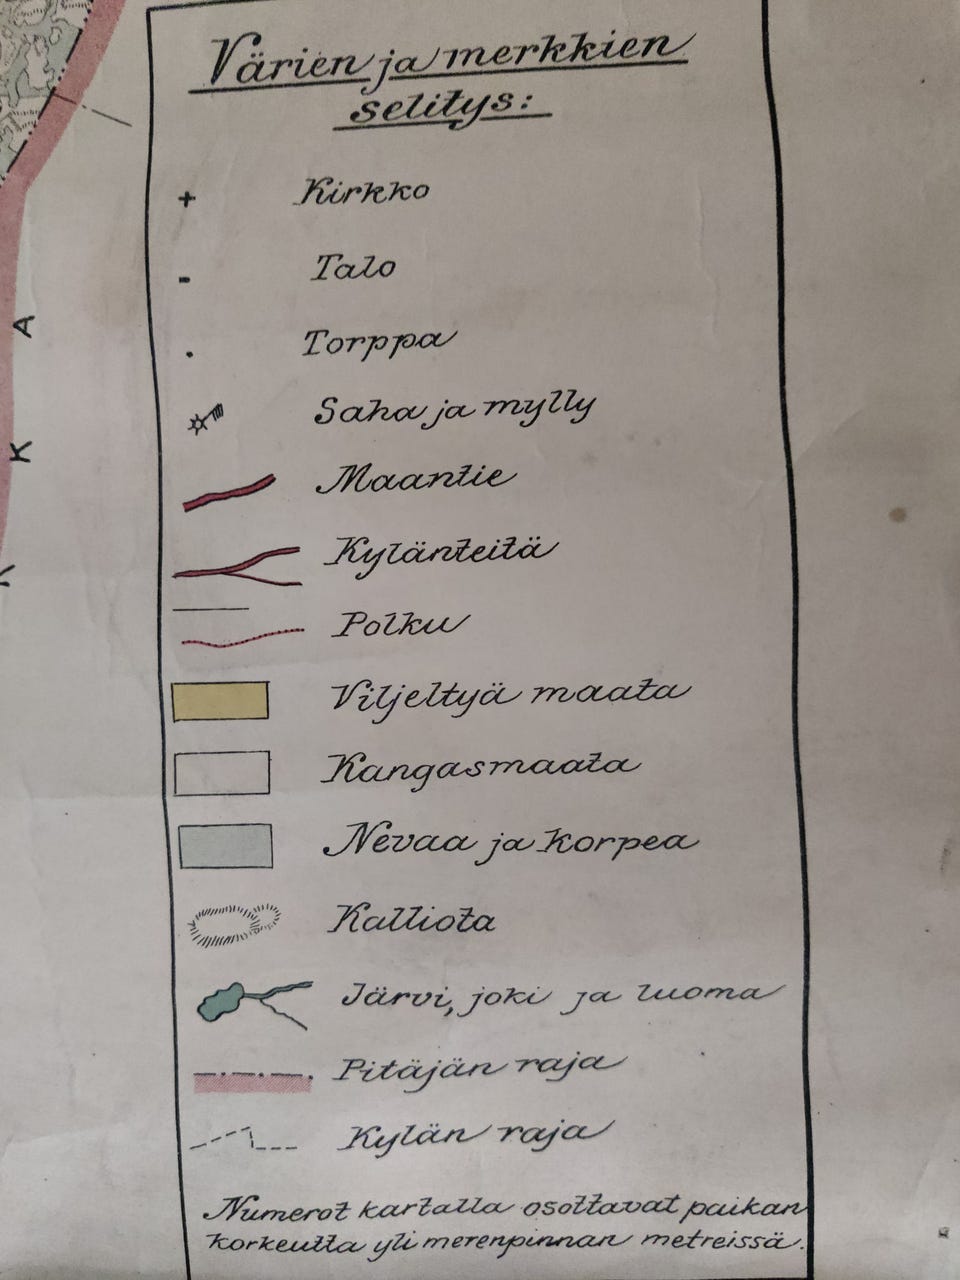 Värien ja merkkien
selitys:
Kirkko
Talo
Torppa
Saha ja mylly
Maantie
Kylänteitä
Polku
Viljeltyä maata
Kangasmaata
Nevaa ja korpea
Kalliota
Järvi, joki ja luoma
Pitäjän raja
Kylän raja
Numerot kartalla osottavat paikan
korkeutta yli merenpinnan metreissä.
A
K